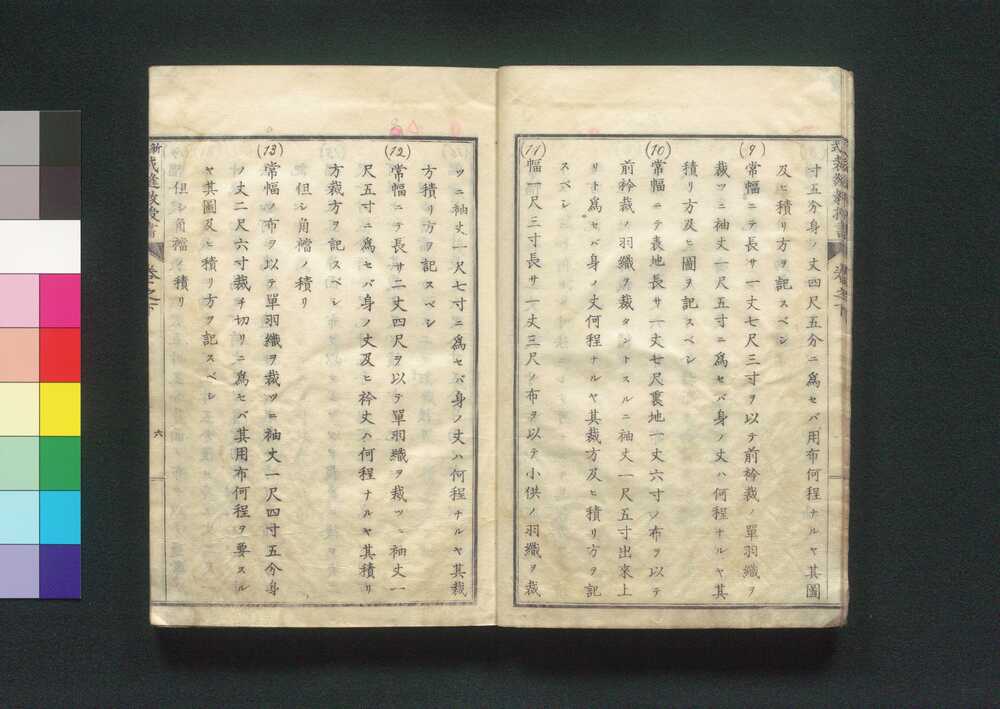 寸五分身ノ丈四尺五分ニ爲セバ用布何程ナルヤ其圖
及ヒ積リ方ヲ記スベシ
(9)
常幅ニテ長サ一丈七尺三寸ヲ以テ前衿裁ノ單羽織ヲ
裁ツニ袖丈一尺五寸ニ爲セバ身ノ丈ハ何程ナルヤ其
積リ方及ヒ圖ヲ記スベシ
(10)
常幅ニテ表地長サ一丈七尺裏地一丈六寸ノ布ヲ以テ
前衿裁ノ羽織ヲ裁タントスルニ袖丈一尺五寸出來上
リト爲セバ身ノ丈何程ナルヤ其裁方及ヒ積リ方ヲ記
スベシ
(11)
幅一尺三寸長サ一丈三尺ノ布ヲ以テ小供ノ羽織ヲ裁
ツニ袖丈一尺七寸ニ爲セバ身ノ丈ハ何程ナルヤ其裁
方積リ方ヲ記スベシ
(12)
常幅ニテ長サ二丈四尺ヲ以テ單羽織ヲ裁ツニ袖丈一
尺五寸ニ爲セバ身ノ丈及ヒ衿丈ハ何程ナルヤ其積リ
方裁方ヲ記スベシ
但シ角襠ノ積リ
(13)
常幅ノ布ヲ以テ單羽織ヲ裁ツニ袖丈一尺四寸五分身
ノ丈二尺六寸裁チ切リニ爲セバ其用布何程ヲ要スル
ヤ其圖及ヒ積リ方ヲ記スベシ
但シ角襠ノ積リ
裁縫教授書
六